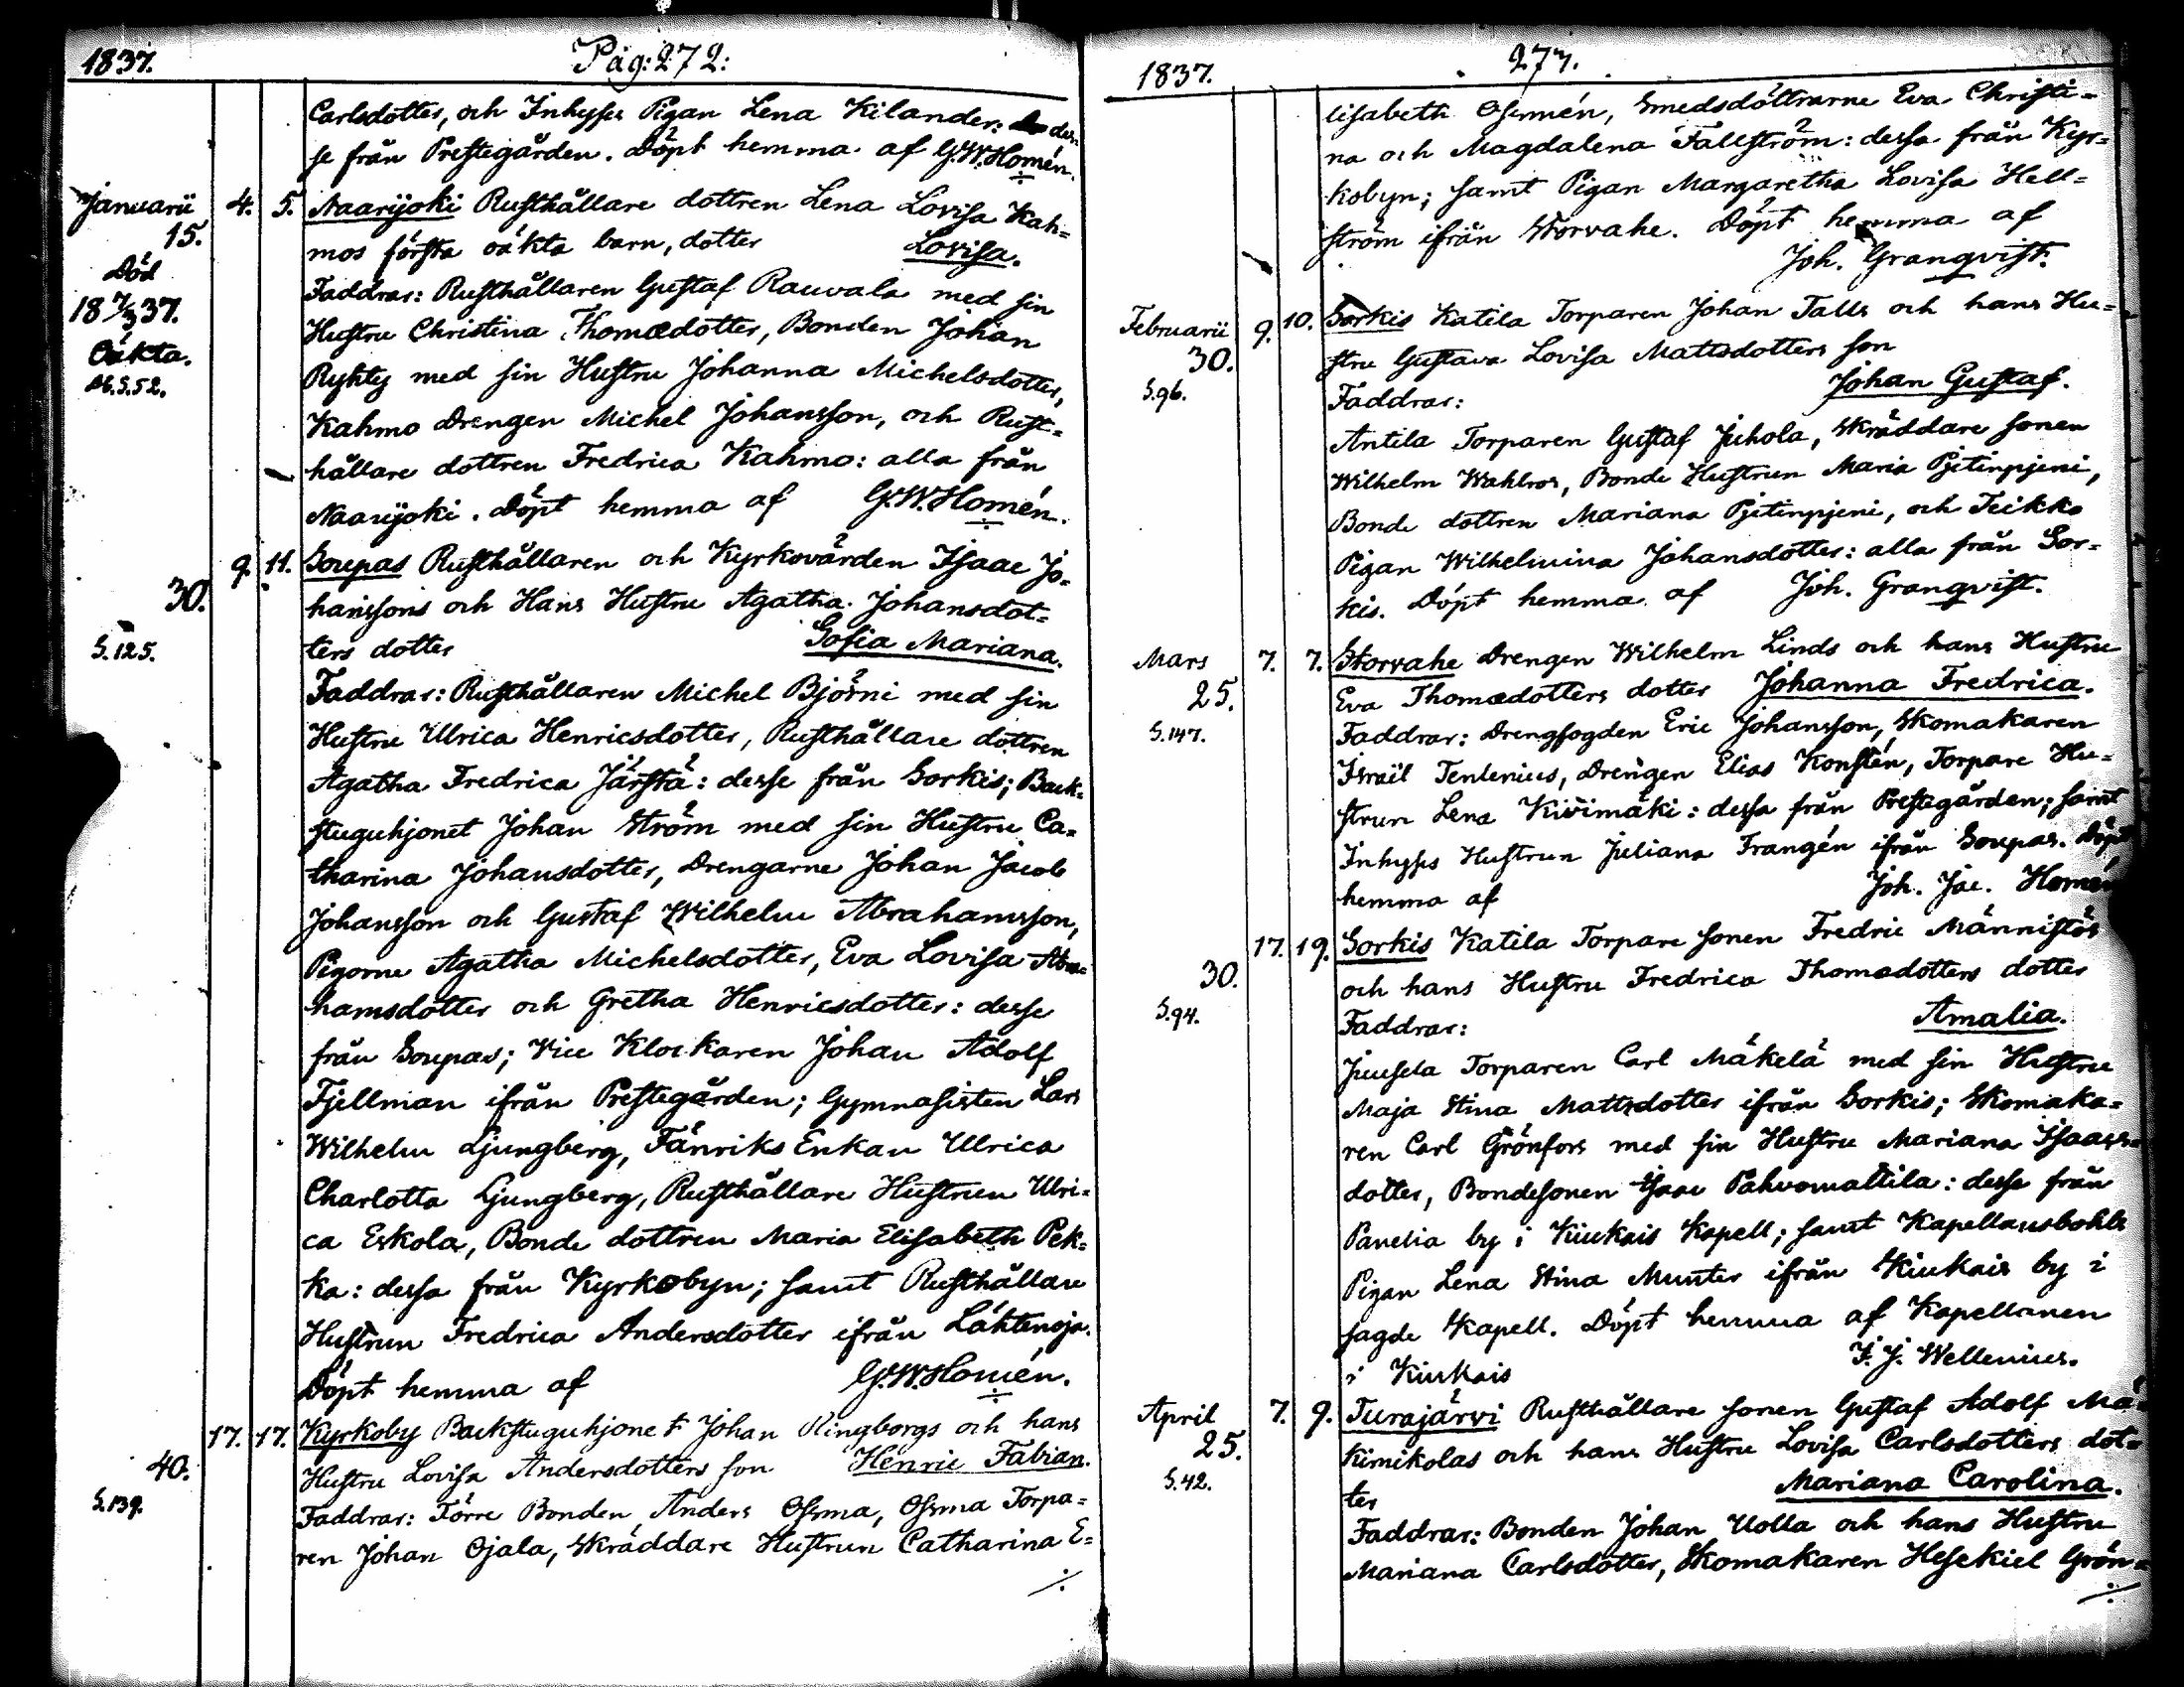 1837.
Pag: 272:
Carlsdotter, och Inhyses Pigan Lena Kilander: des-
se från Prestegården. Döpt hemma af G.W. Homén.
Januarii 4. 5. Naarijoki Rusthållare dottren Lena Lovisa Kah-
15. mos första oäkta barn, dotter Lovisa.
Död Faddrar: Rusthållaren Gustaf Rauvala med sin
18 7/3 37. Hustru Christina Thomædotter, Bonden Johan
Oäkta. Rykty med sin Hustru Johanna Michelsdotter,
Ab. S. 52. Kahmo Drengen Michel Johansson, och Rust-
hållare dottren Fredrica Kahmo: alla från
Naarijoki. Döpt hemma af G.W. Homén.
9. 11. Soupas Rusthållaren och Kyrkovärden Isaac Jo-
30. hanssons och Hans Hustru Agatha Johansdot-
S. 125. ters dotter Sofia Mariana.
Faddrar: Rusthållaren Michel Björni med sin
Hustru Ulrica Henricsdotter, Rusthållare dottren
Agatha Fredrica Järstä: desse från Sorkis; Back-
stuguhjonet Johan Ström med sin Hustru Ca-
tharina Johansdotter, Drengarne Johan Jacob
Johansson och Gustaf Wilhelm Abrahamsson,
Pigorne Agatha Michelsdotter, Eva Lovisa Abra-
hamsdotter och Gretha Henricsdotter: desse
från Soupas; Vice Klockaren Johan Adolf
Fjellman ifrån Prestegården; Gymnasisten Lars
Wilhelm Ljungberg, Fänriks Enkan Ulrica
Charlotta Ljungberg, Rusthållare Hustrun Ulri-
ca Eskola, Bonde dottren Maria Elisabeth Pek-
ka: dessa från Kyrkobyn; samt Rusthållare
Hustrun Fredrica Andersdotter ifrån Lähtenoja.
Döpt hemma af G.W. Homén.
17. 17. Kyrkoby Backstuguhjonet Johan Ringborgs och hans
40. Hustru Lovisa Andersdotters son Henric Fabian.
S. 139. Faddrar: Förre Bonden Anders Ofsma, Ofsma Torpa-
ren Johan Ojala, Skräddare Hustrun Catharina E-
1837.
273.
lisabeth Osenmén, Smedsdöttrarne Eva Christi-
na och Magdalena Fallström: dessa från Kyr-
kobyn; samt Pigan Margaretha Lovisa Hell-
ström ifrån Storvahe. Döpt hemma af
Joh. Granqvist.
Februarii 9. 10. Sorkis Katila Torparen Johan Talls och hans Hu-
30. stru Gustava Lovisa Mattsdotters son
S. 96. Johan Gustaf.
Faddrar:
Antila Torparen Gustaf Juhola, Skräddare sonen
Wilhelm Wahlros, Bonde Hustrun Maria Pjetinpjeni,
Bonde dottren Mariana Pjetinpjeni, och Teikko
Pigan Wilhelmina Johansdotter: alla från Sor-
kis. Döpt hemma af Joh. Granqvist.
Mars 7. 7. Storvahe Drengen Wilhelm Linds och hans Hustru
25. Eva Thomædotters dotter Johanna Fredrica.
S. 147. Faddrar: Drengfogden Eric Johansson, Skomakaren
Israël Tenlenius, Drengen Elias Konstén, Torpare Hu-
strun Lena Kivimäki: dessa från Prestegården; samt
Inhyses Hustrun Juliana Frangén ifrån Soupas. Döpt
hemma af Joh. Jac. Homén
17. 19. Sorkis Katila Torpare sonen Fredric Männistös
30. och hans Hustru Fredrica Thomædotters dotter
S. 94. Faddrar: Amalia.
Juusela Torparen Carl Mäkelä med sin Hustru
Maja Stina Mattsdotter ifrån Sorkis; Skomaka-
ren Carl Grönfors med sin Hustru Mariana Isaacs-
dotter, Bondesonen Isaac Pahvomattila: desse från
Panelia by i Kiukais Kapell; samt Kapellansbohls
Pigan Lena Stina Munter ifrån Kiukais by i
sagde Kapell. Döpt hemma af Kapellanen
i Kiukais I. J. Wellenius.
April 7. 9. Turajärvi Rusthållare sonen Gustaf Adolf Mä-
25. kimikolas och hans Hustru Lovisa Carlsdotters dot-
S. 42. ter Mariana Carolina.
Faddrar: Bonden Johan Uolla och hans Hustru
Mariana Carlsdotter, Skomakaren Hesekiel Grön-